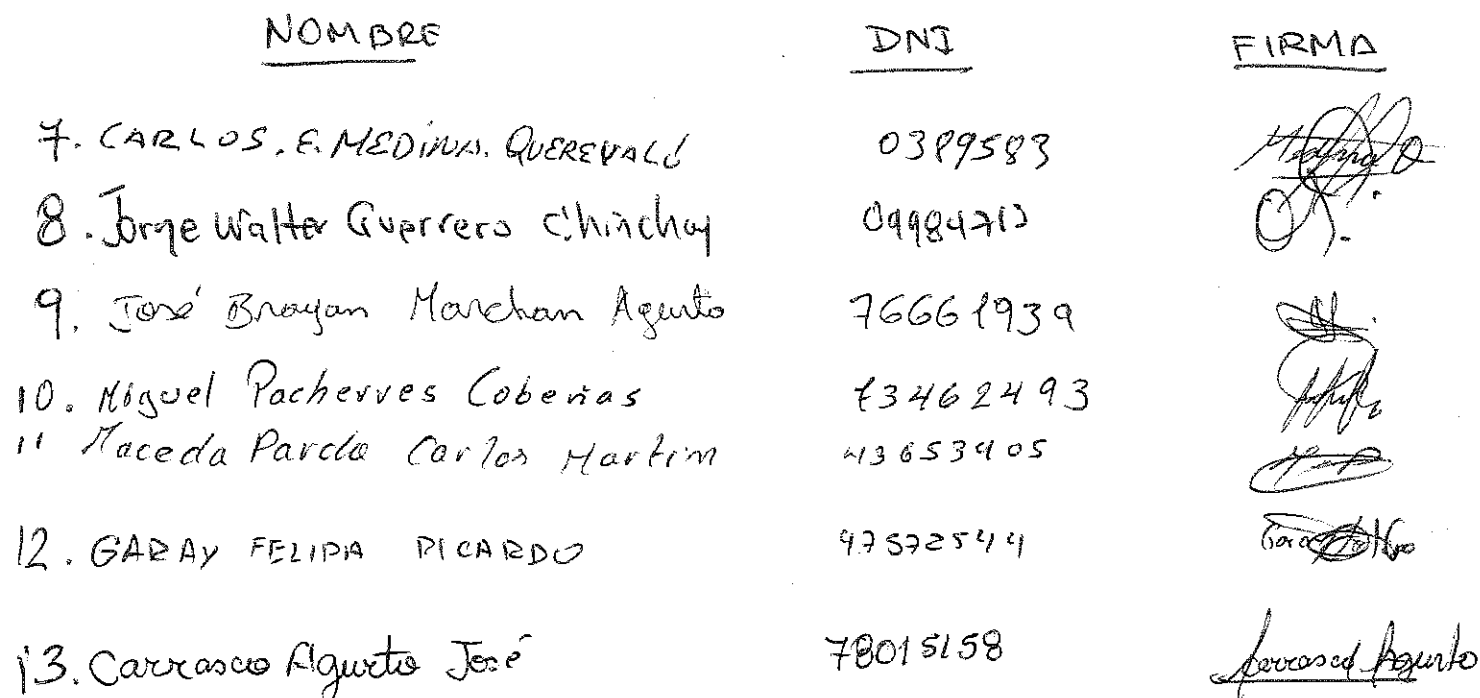 NOMBRE DNI FIRMA
7. CARLOS. E. MEDINA. QUEREVALÚ 0389583
8. Jorge Walter Guerrero Chinchay 09984712
9. José Brayan Marchan Agurto 76661939
10. Miguel Pacherres Cobeñas 73462493
11 Maceda Parda Carlos Martim 43653405
12. GARAY FELIPA RICARDO 47572544
13. Carrasco Agurto José 78015158 Carrasco Agurto